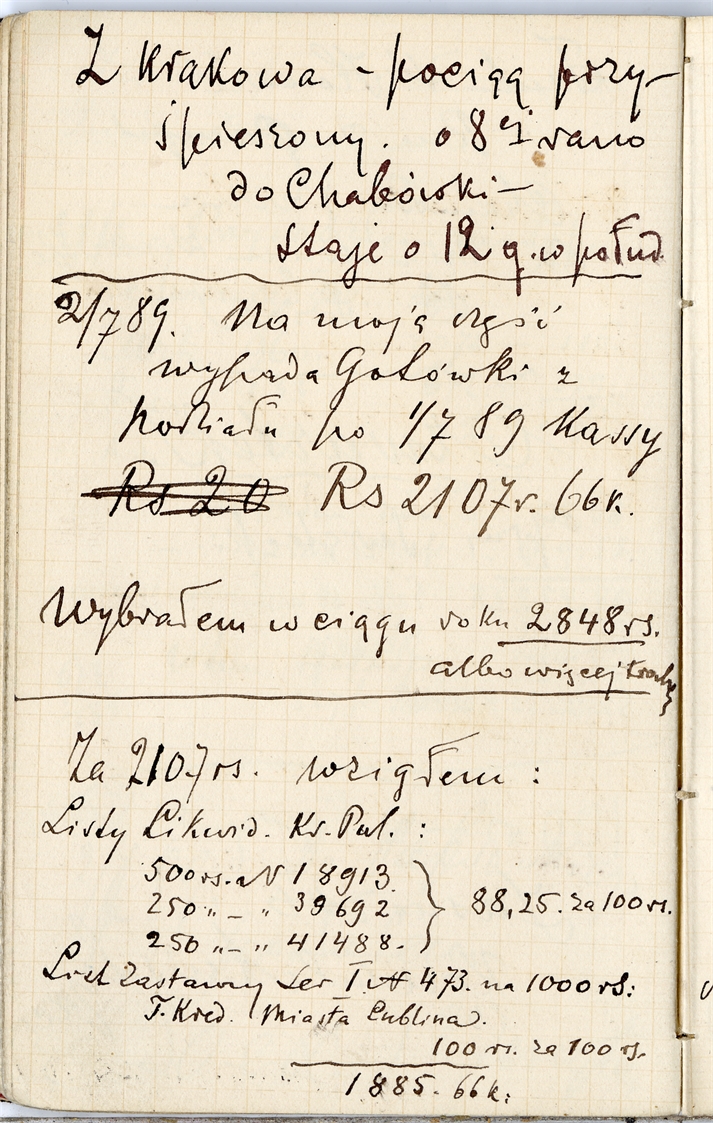 Z Krakowa – pociąg przy–
śpieszony. o 8ej rano
do Chabówki –
staje o 12 g. w połud.
2/7 89. Na moją część
wypada Gotówki z
podziału po 1/7 89 Kassy
Rs 20 Rs 2107 r. 66 k.
Wybrałem w ciągu roku 2848 rs.
albo więcej trochę
Za 2107 rs. wziąłem :
Listy Likwid. Kr. Pol. :
500 rs. a N 18913.
250 „ – „ 39692 88,25. za 100 rs.
250 „ – „ 41488.
List Zastawny Ser I. N 473. na 1000 rs:
T. Kred. Miasta Lublina.
100 rs. za 100 rs.
1885. 66 k: